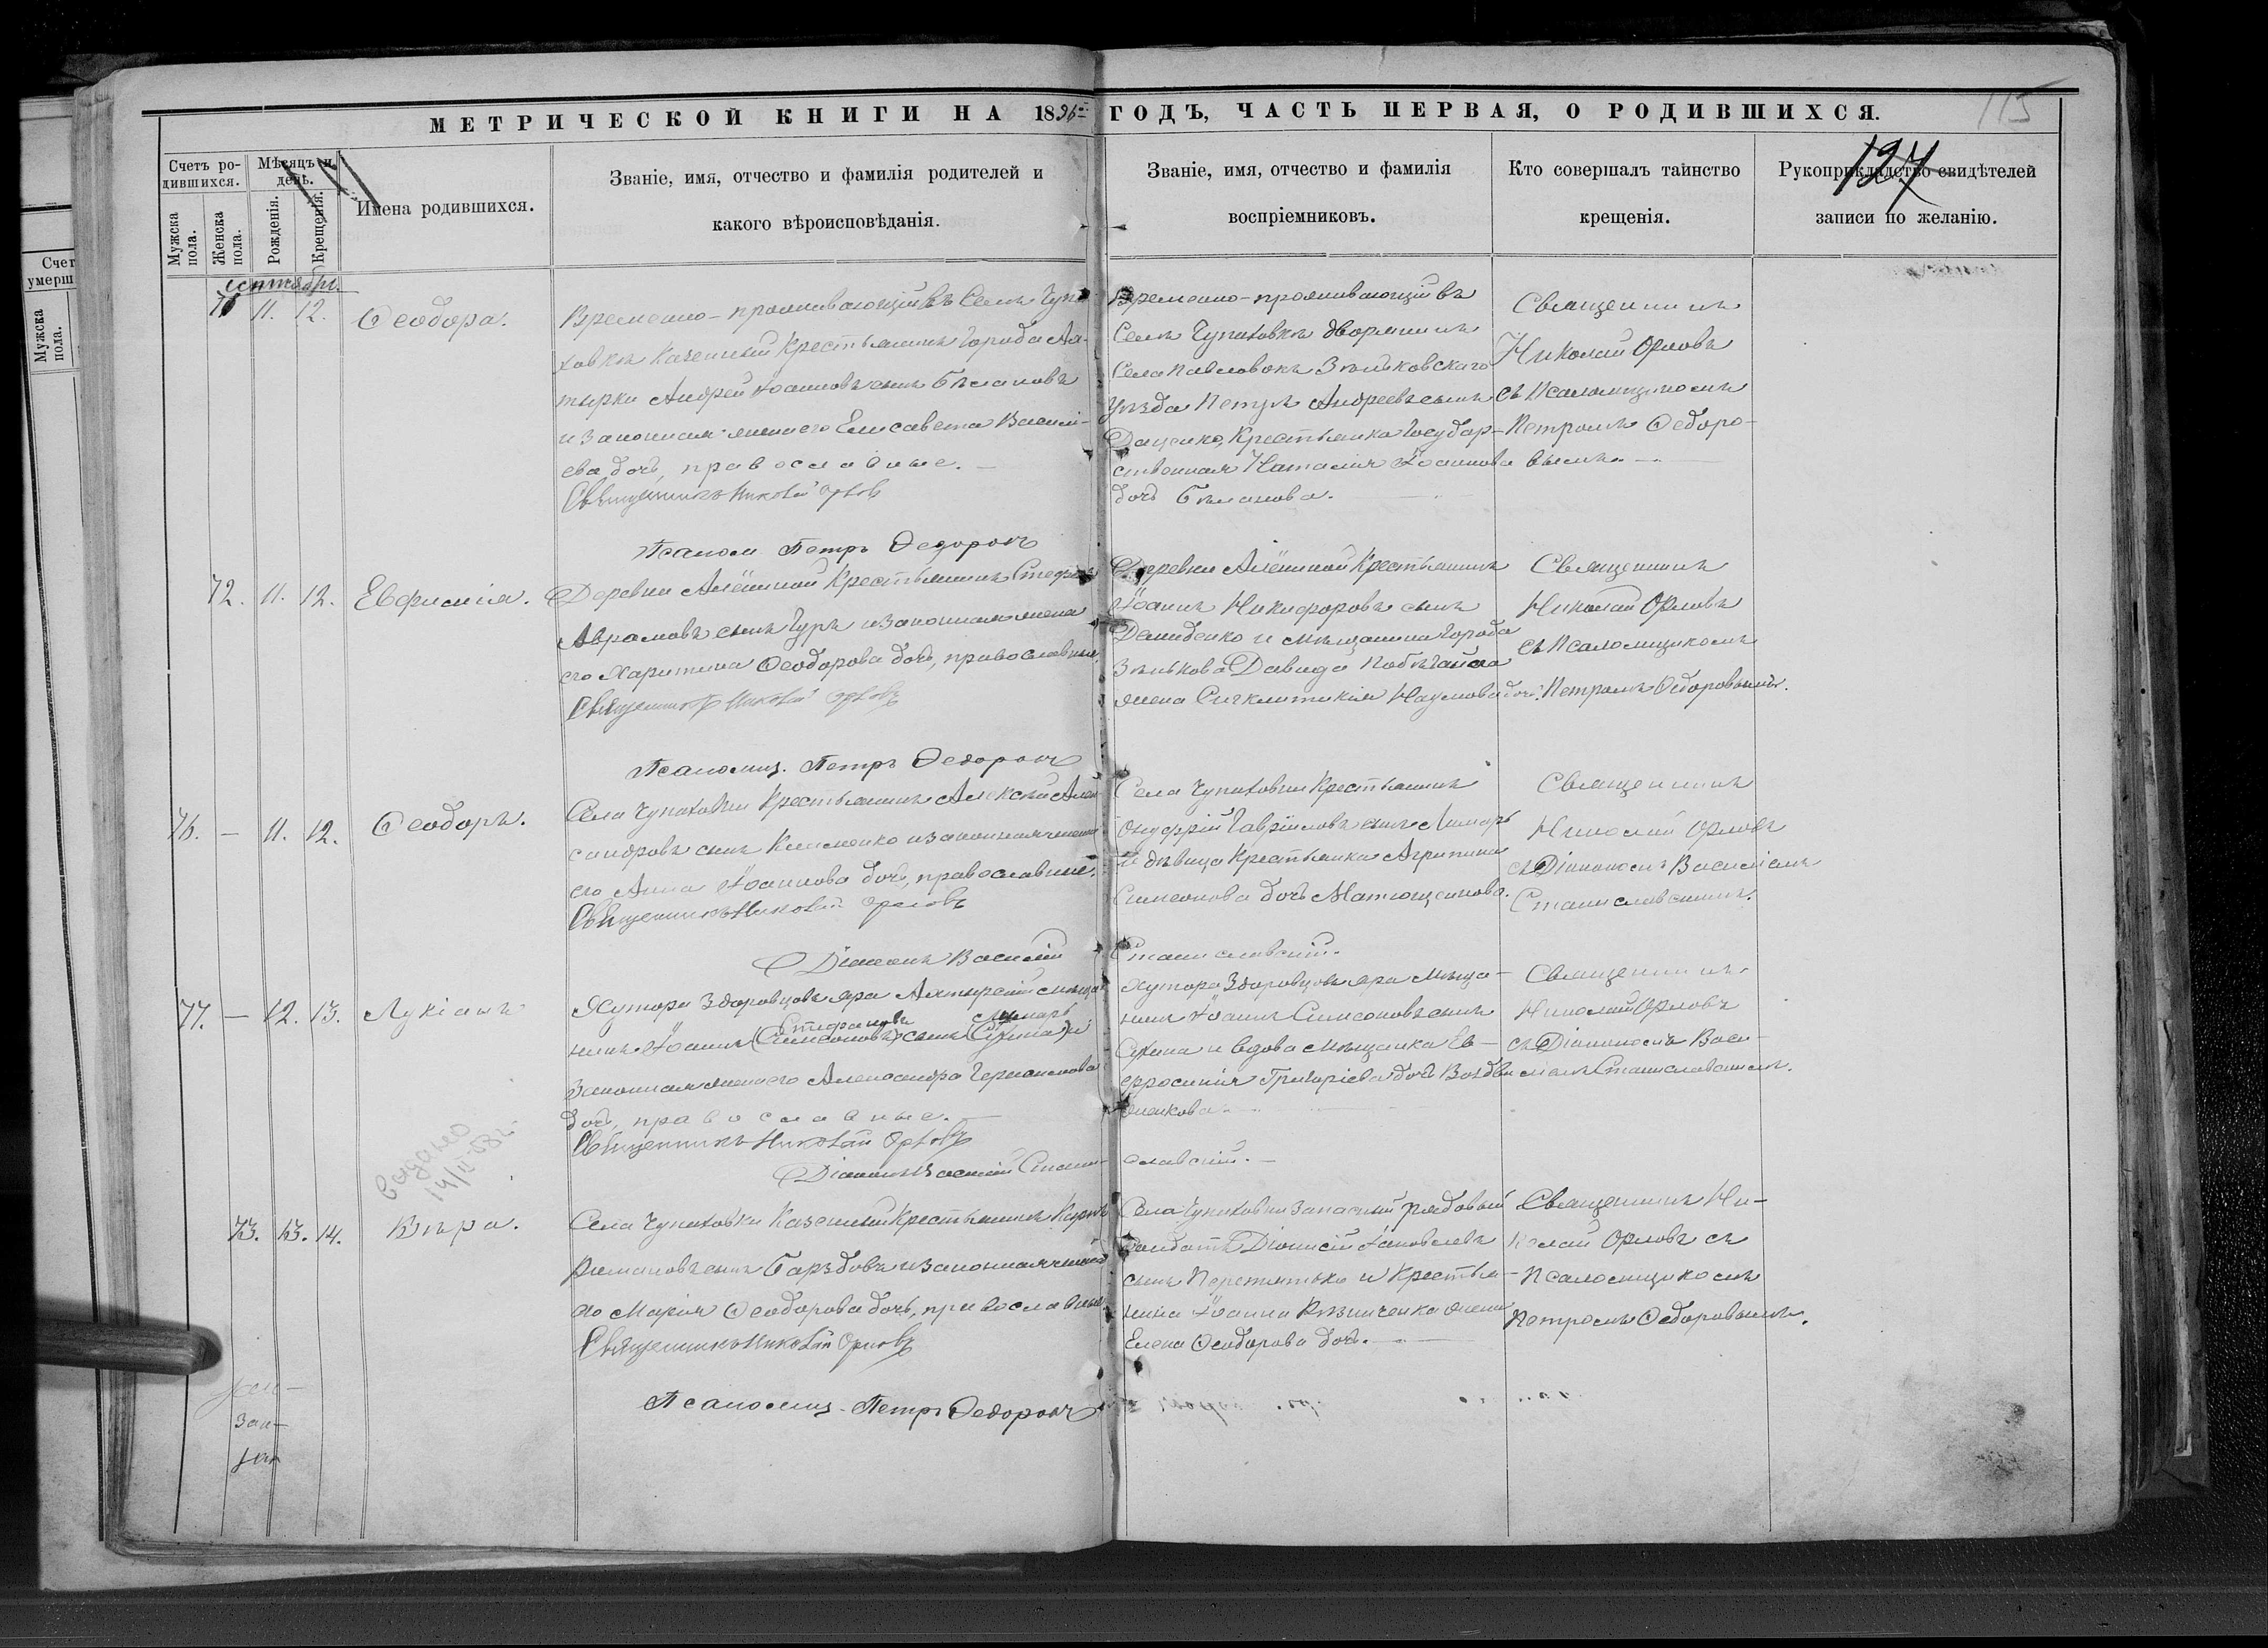 МЕТРИЧЕСКОЙ КНИГИ НА 1896 ГОДЪ, ЧАСТЬ ПЕРВАЯ, О РОДИВШИХСЯ.
115
127
Счетъ родившихся.
Мужска пола.
Женска пола.
Мѣсяцъ и день.
Рожденія.
Крещенія.
Имена родившихся.
Званіе, имя, отчество и фамилія родителей и
какого вѣроисповѣданія.
Званіе, имя, отчество и фамилія
воспріемниковъ.
Кто совершалъ таинство
крещенія.
Рукоприкладство свидѣтелей
записи по желанію.
Счет
умерш
Мужска
пола.
сентябрь.
71 11. 12. Ѳеодора.
Временно-проживающій въ Селѣ Чупа-
ховкѣ Казенный Крестьянинъ Города Ах-
тырки Андрей Іоанновъ сынъ Бѣлановъ
и законная жена его Елисавета Василі-
ева дочь, православные.
Священникъ Николай Орловъ
Псалом Петръ Ѳедоровъ
Временно-проживающій въ
Селѣ Чупаховкѣ дворянинъ
Села Павловокъ Зѣньковскаго
Уѣзда Петръ Андреевъ сынъ
Даценко, Крестьянка Государ-
ственная Наталія Іоаннова
дочь Бѣланова.
Священникъ
Николай Орловъ
съ Псаломщикомъ
Петромъ Ѳедоро-
вымъ.
72. 11. 12. Евфимія.
Деревни Алёшной Крестьянинъ Стефанъ
Аврамовъ сынъ Гуръ и законная жена
его Харитина Ѳеодорова дочь, православные.
Священникъ Николай Орловъ
Псаломщ. Петръ Ѳедоровъ
Деревни Алёшной Крестьянинъ
Іоаннъ Никифоровъ сынъ
Демиденко и мѣщанина Города
Зѣнькова Давида
жена Сигклитикія Наумова дочь.
Священникъ
Николай Орловъ
съ Псаломщикомъ
Петромъ Ѳедоровымъ.
76. — 11. 12. Ѳеодоръ.
Села Чупаховки Крестьянинъ Алексій Алек-
сандровъ сынъ Клименко и законная жена
его Анна Іоаннова дочь, православные.
Священникъ Николай Орловъ
Діаконъ Василій Станиславскій.
Села Чупаховки Крестьянинъ
Онуфрій Гавріиловъ сынъ Лимарь
и дѣвица Крестьянка Агрипина
Симеонова дочь Матющенкова.
Священникъ
Николай Орловъ
съ Діакономъ Василіемъ
Станиславскимъ.
77. — 12. 13. Лукіанъ
Хутора Здоровцовъ яра Ахтырскій мѣща-
Стефановъ Лимарь
нинъ Іоаннъ (Симеоновъ) сынъ (Сухина) и
законная жена его Александра Германова
дочь, православные.
Священникъ Николай Орловъ
Діаконъ Василій Станиславскій.
Хутора Здоровцовъ яра мѣща-
нинъ Іоаннъ Симеоновъ сынъ
Сухина и вдова мѣщанка Ев-
фросинія Григоріева дочь Воздви
женкова.
Священникъ
Николай Орловъ
съ Діакономъ Васи-
ліемъ Станиславскимъ.
выдано
73. 13. 14. Вѣра.
Села Чупаховки Казенный Крестьянинъ
Романовъ сынъ и законная жена
его Марія Ѳеодорова дочь, православные.
Священникъ Николай Орловъ
Псаломщ. Петръ Ѳедоровъ
Села Чупаховки запасный рядовый
Солдатъ Діонисій Іаковлевъ
сынъ Перетятько и Крестья-
нина Іоанна Рѣзниченка жена
Елена Ѳеодорова дочь.
Священникъ Ни-
колай Орловъ съ
Псаломщикомъ
Петромъ Ѳедоровымъ.